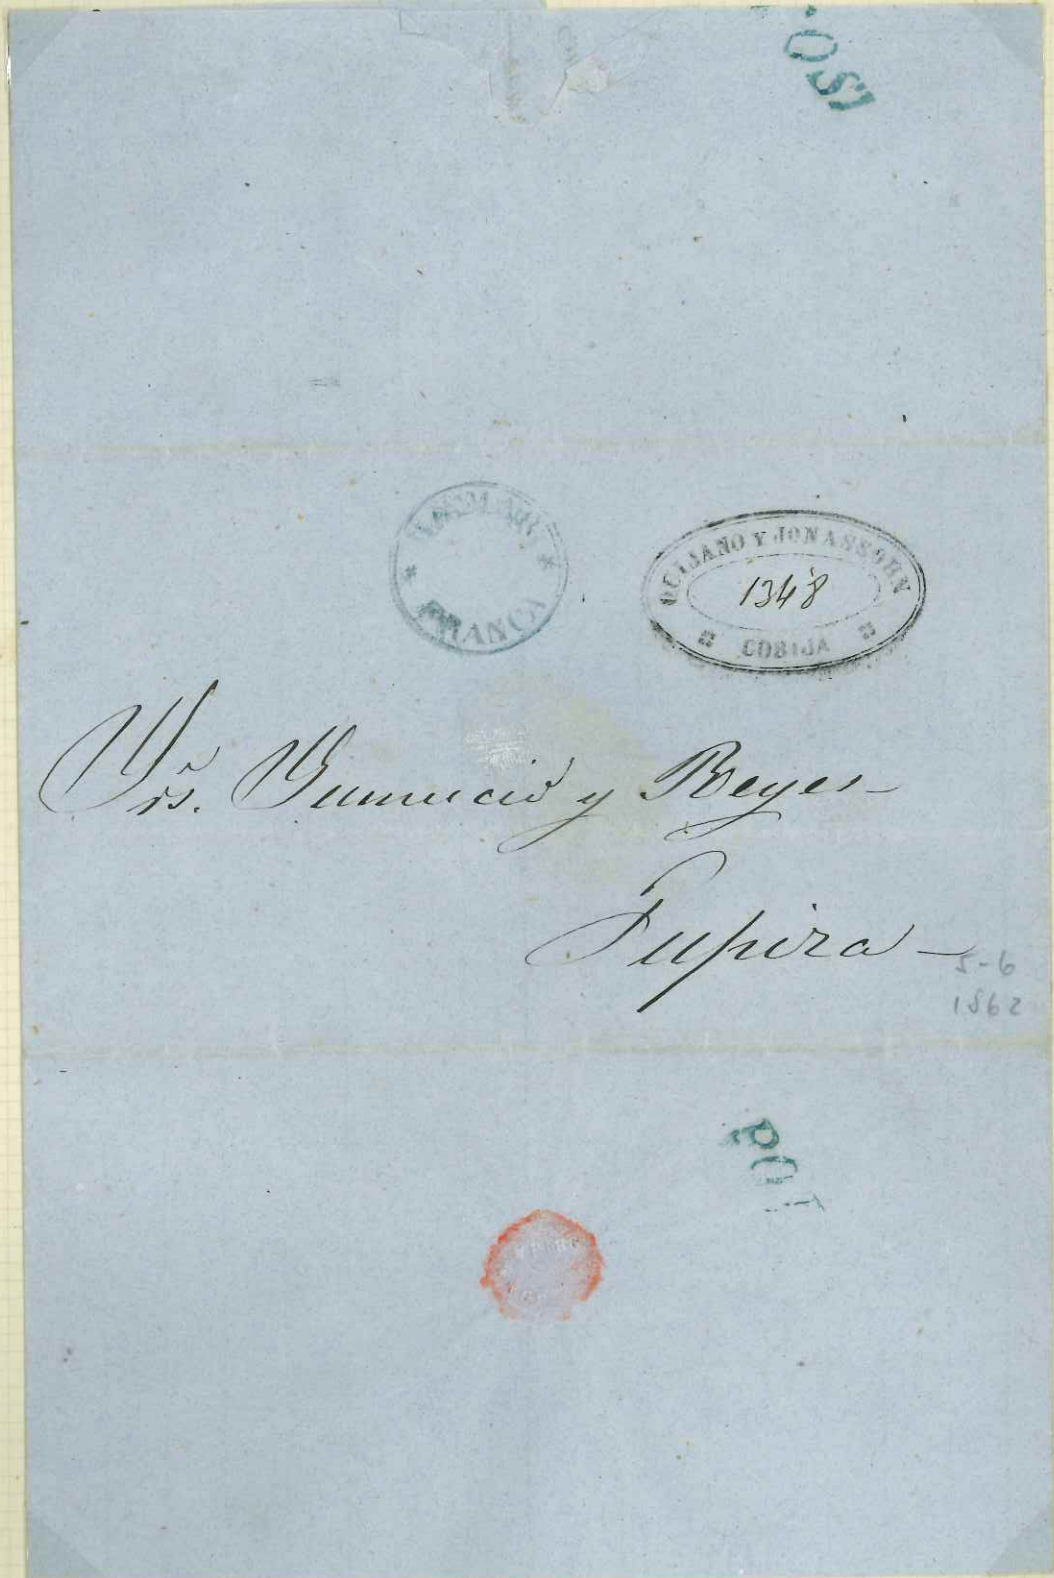 FRANCA
QUIJANO Y JONASSOHN
1348
COBIJA
Srs. Gumucio y Reyes
Tupiza
5-6
1862